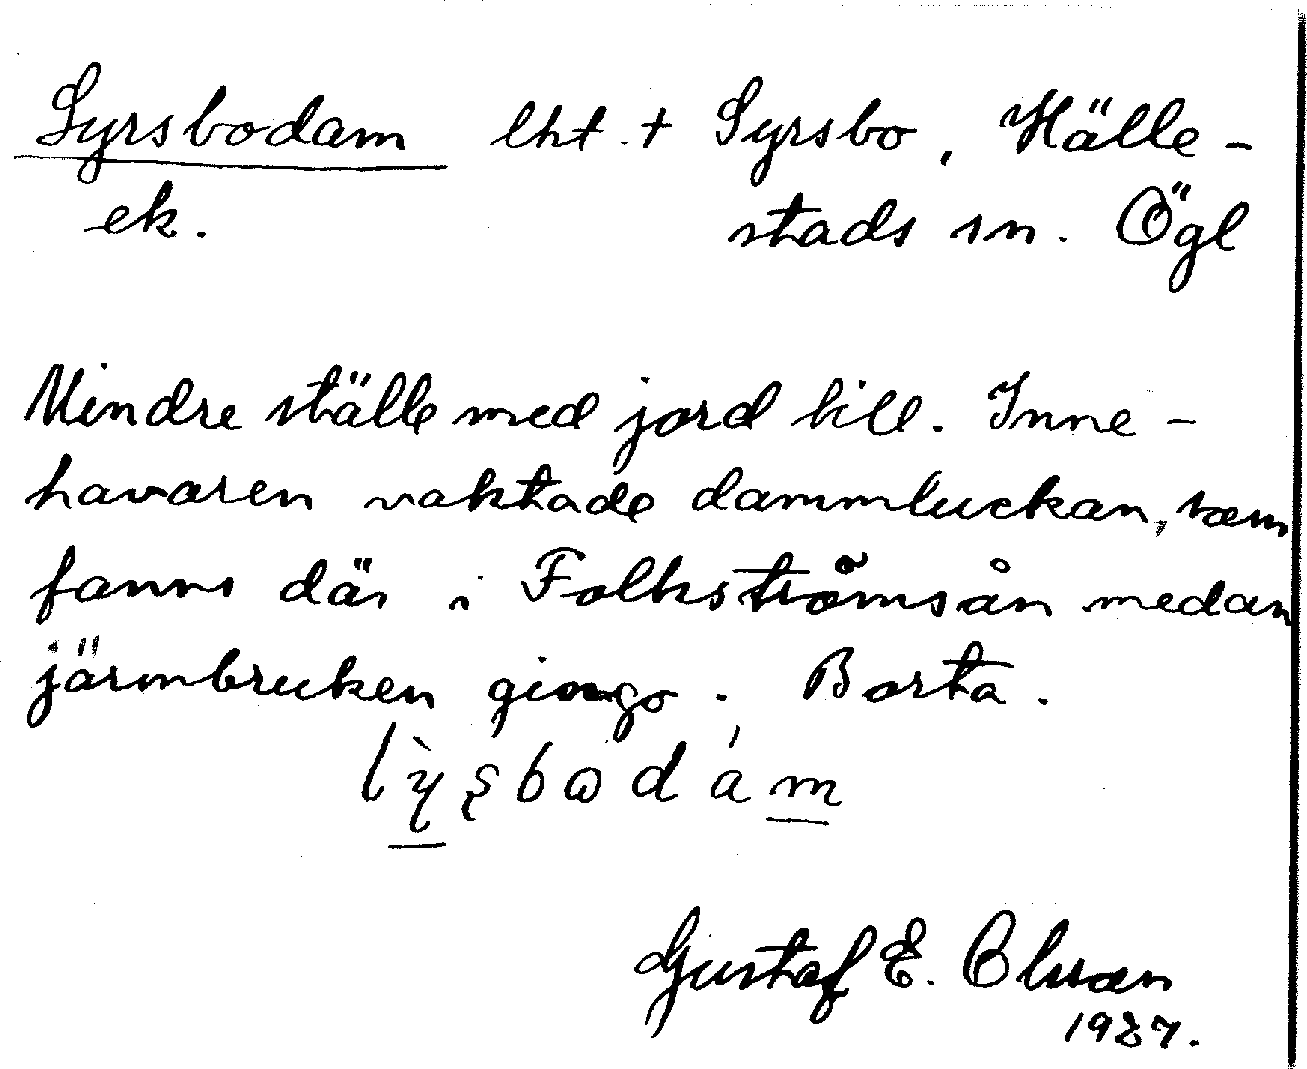 Syrsbodam lht. + Syrsbo, Hälle-
ek. stads sn. Ögl
Mindre ställe med jord till. Inne-
havaren vaktade dammluckan, som
fanns där i Folkströmsån medan
järnbruken gingo. Borta.
Gustaf E. Olsson
1937.